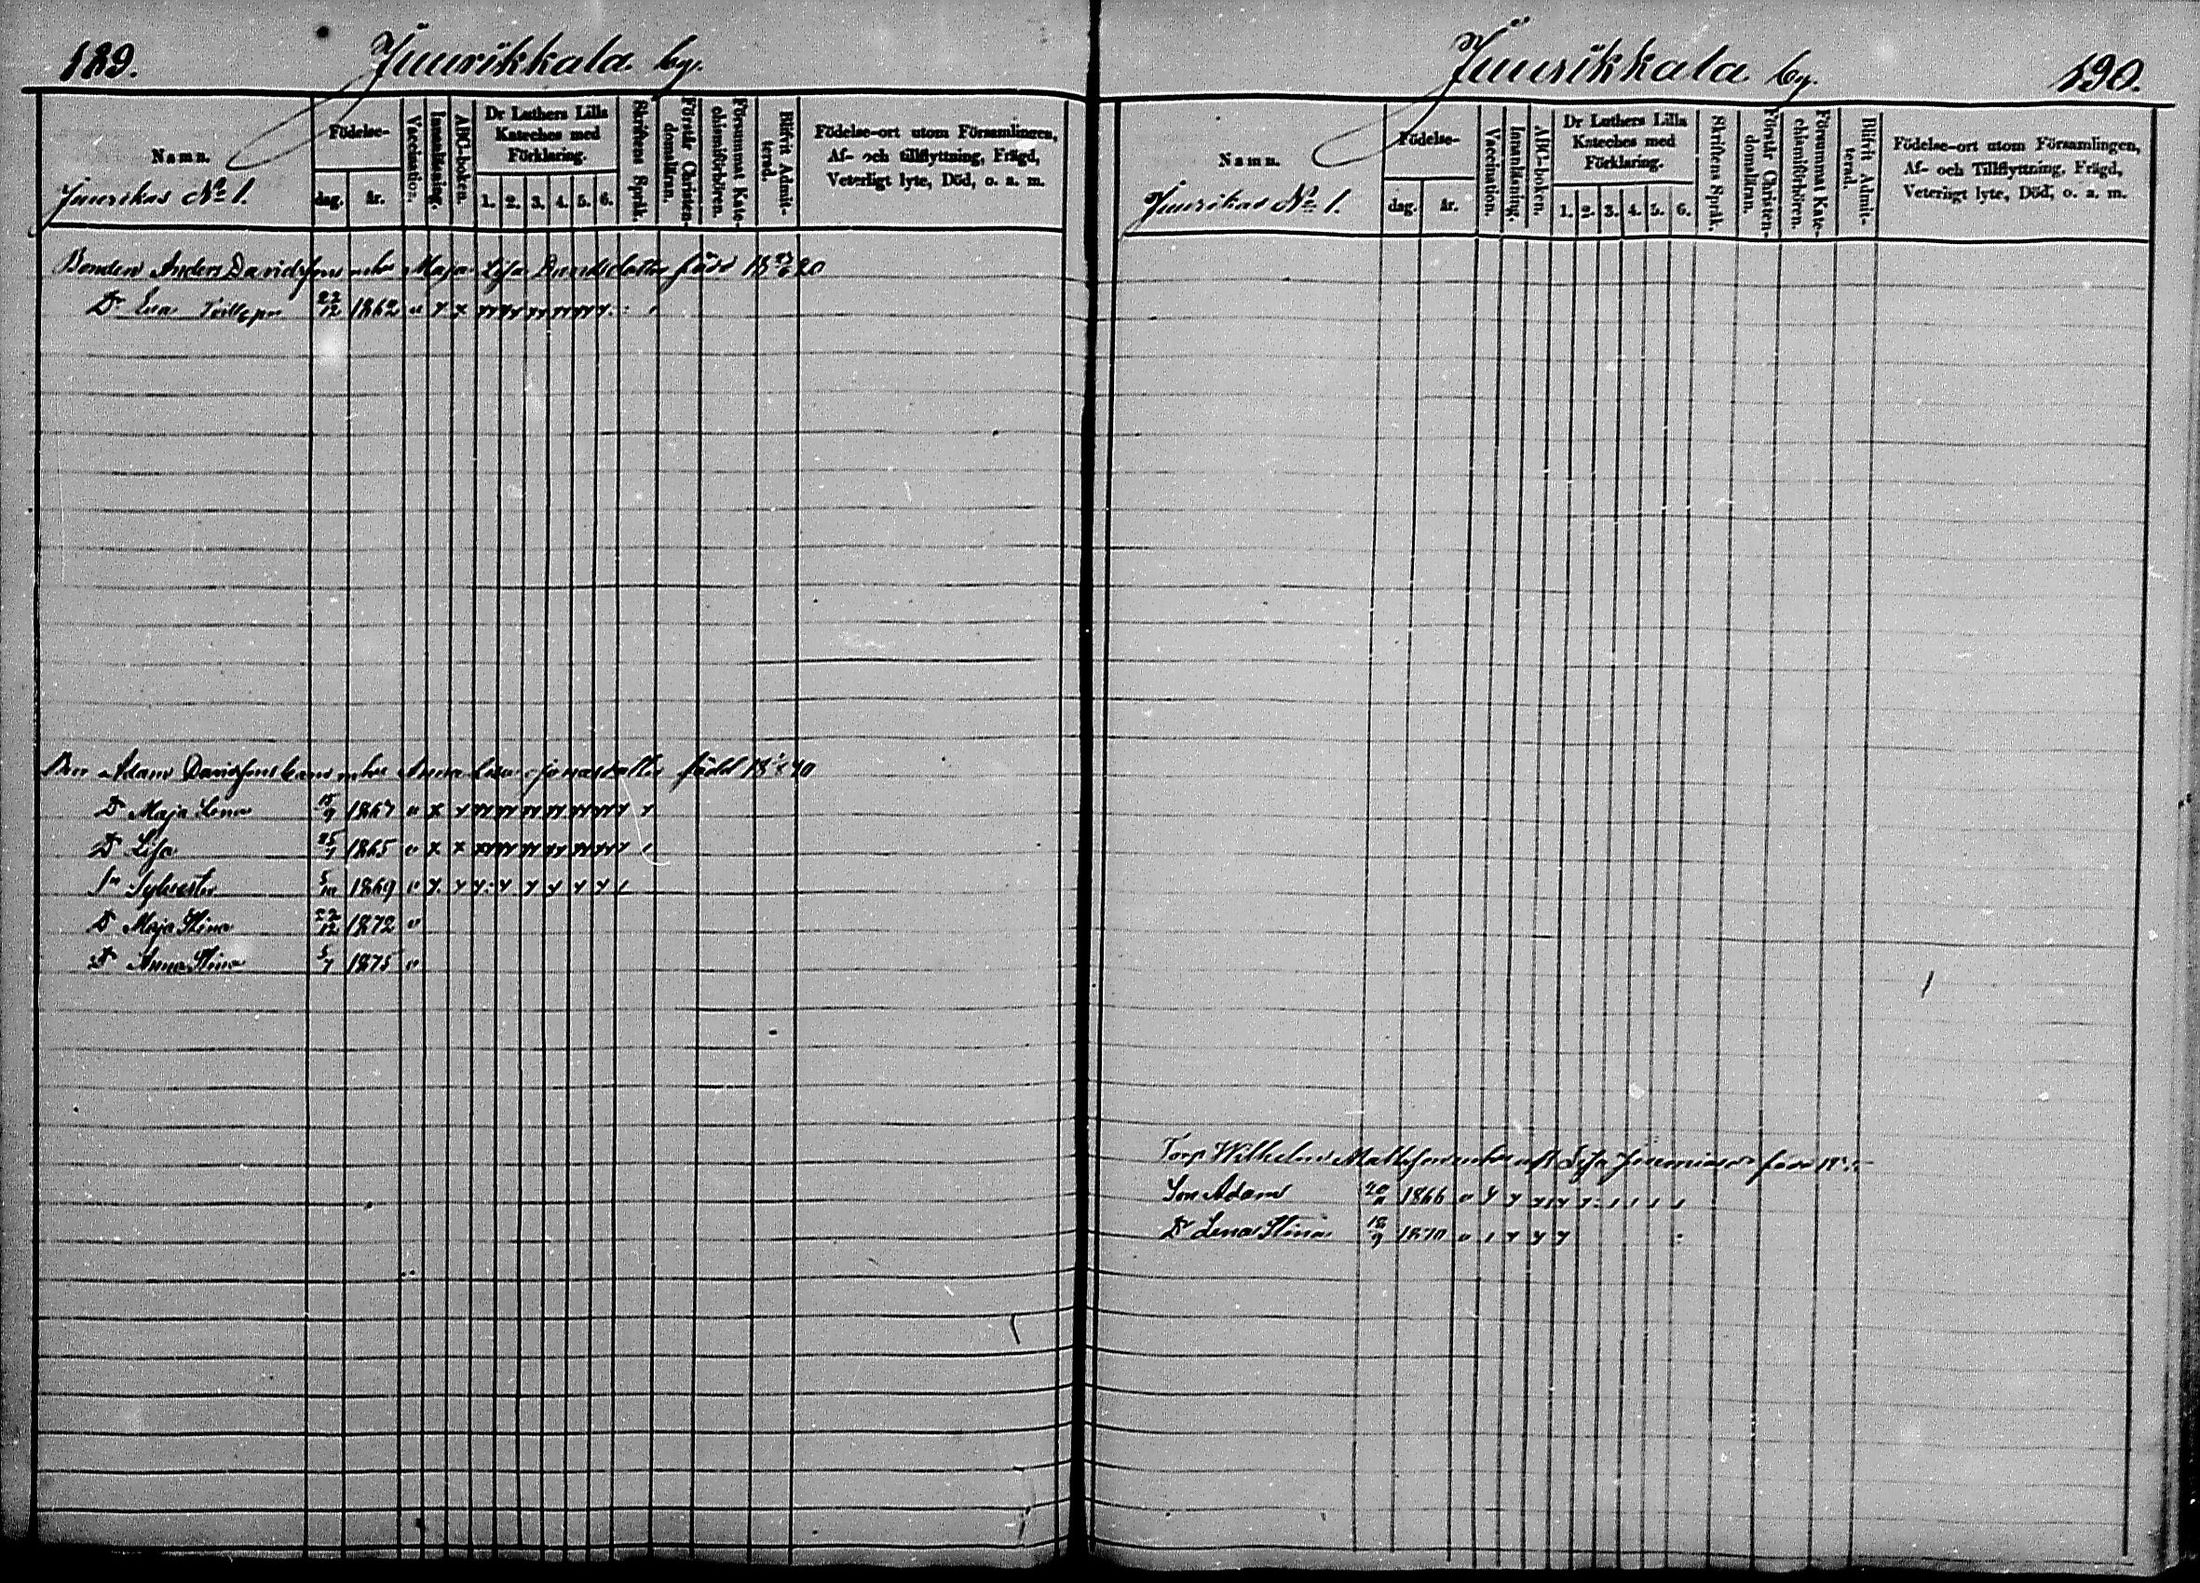 189.
Juurikkala by.
Namn.
Juurikas No 1.
Födelse-
dag.
år.
Vaccination.
Innanläsning.
ABC-boken.
Dr Luthers Lilla
Kateches med
Förklaring.
1. 2. 3. 4. 5. 6.
Skriftens Språk.
Förstår Christen-
domsläran.
Försummat Kate-
chismiförhören.
Blifvit Admit-
terad.
Födelse-ort utom Församlingen,
Af- och tillflyttning, Frägd,
Veterligt lyte, Död, o. a. m.
Bonden Anders Davidssons Maja Lisa Davidsdotter född 18 20
Dr Eva 22/12 1862
Adam Davidssons Anna Lisa Jonasdotter född 18 40
Dr Maja Lena 15/9 1867
Dr Lisa 25/7 1865
Sn Sylvester 5/10 1869
Dr Maja Stina 22/12 1872
Dr Anna Stina 5/7 1875
Juurikkala by.
190.
Namn.
Juurikas No 1.
Födelse-
dag.
år.
Vaccination.
Innanläsning.
ABC-boken.
Dr Luthers Lilla
Kateches med
Förklaring.
1. 2. 3. 4. 5. 6.
Skriftens Språk.
Förstår Christen-
domsläran.
Försummat Kate-
chismiförhören.
Blifvit Admit-
terad.
Födelse-ort utom Församlingen,
Af- och Tillflyttning, Frägd,
Veterligt lyte, Död, o. a. m.
Torp Wilhelm Mattssons Lisa
Son Adam 1866
Dr Lena Stina 18/9 1870